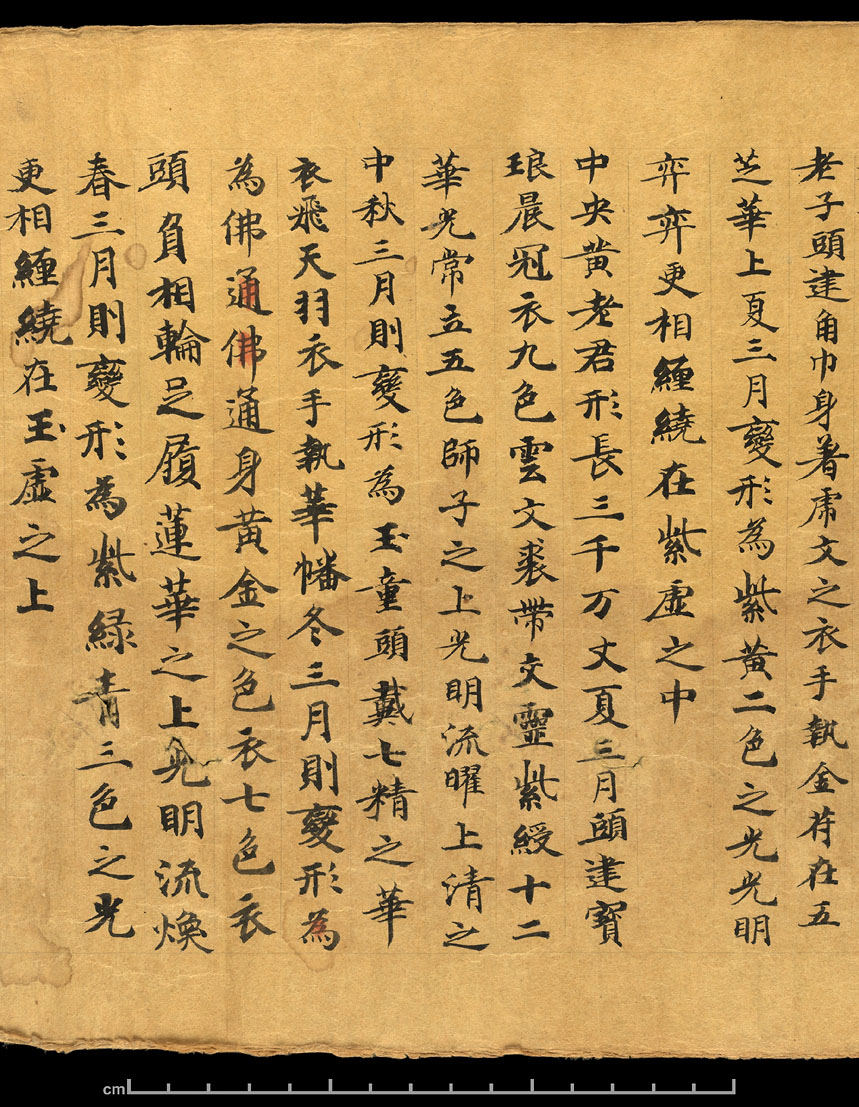 老子頭建角巾身著虎文之衣手執金苻在五
芝華上夏三月變形為紫黃二色之光光明
弈弈更相纏繞在紫虛之中
中央黃老君形長三千万丈夏三月頭建寶
琅晨冠衣九色雲文裘帶文靈紫綬十二
華光常立五色師子之上光明流曜上清之
中秋三月則變形為玉童頭戴七精之華
衣飛天羽衣手執華幡冬三月則變形為
為佛通佛通身黃金之色衣七色衣
頭負相輪足履蓮華之上光明流煥
春三月則變形為紫綠青三色之光
更相纏繞在玉虛之上
cm